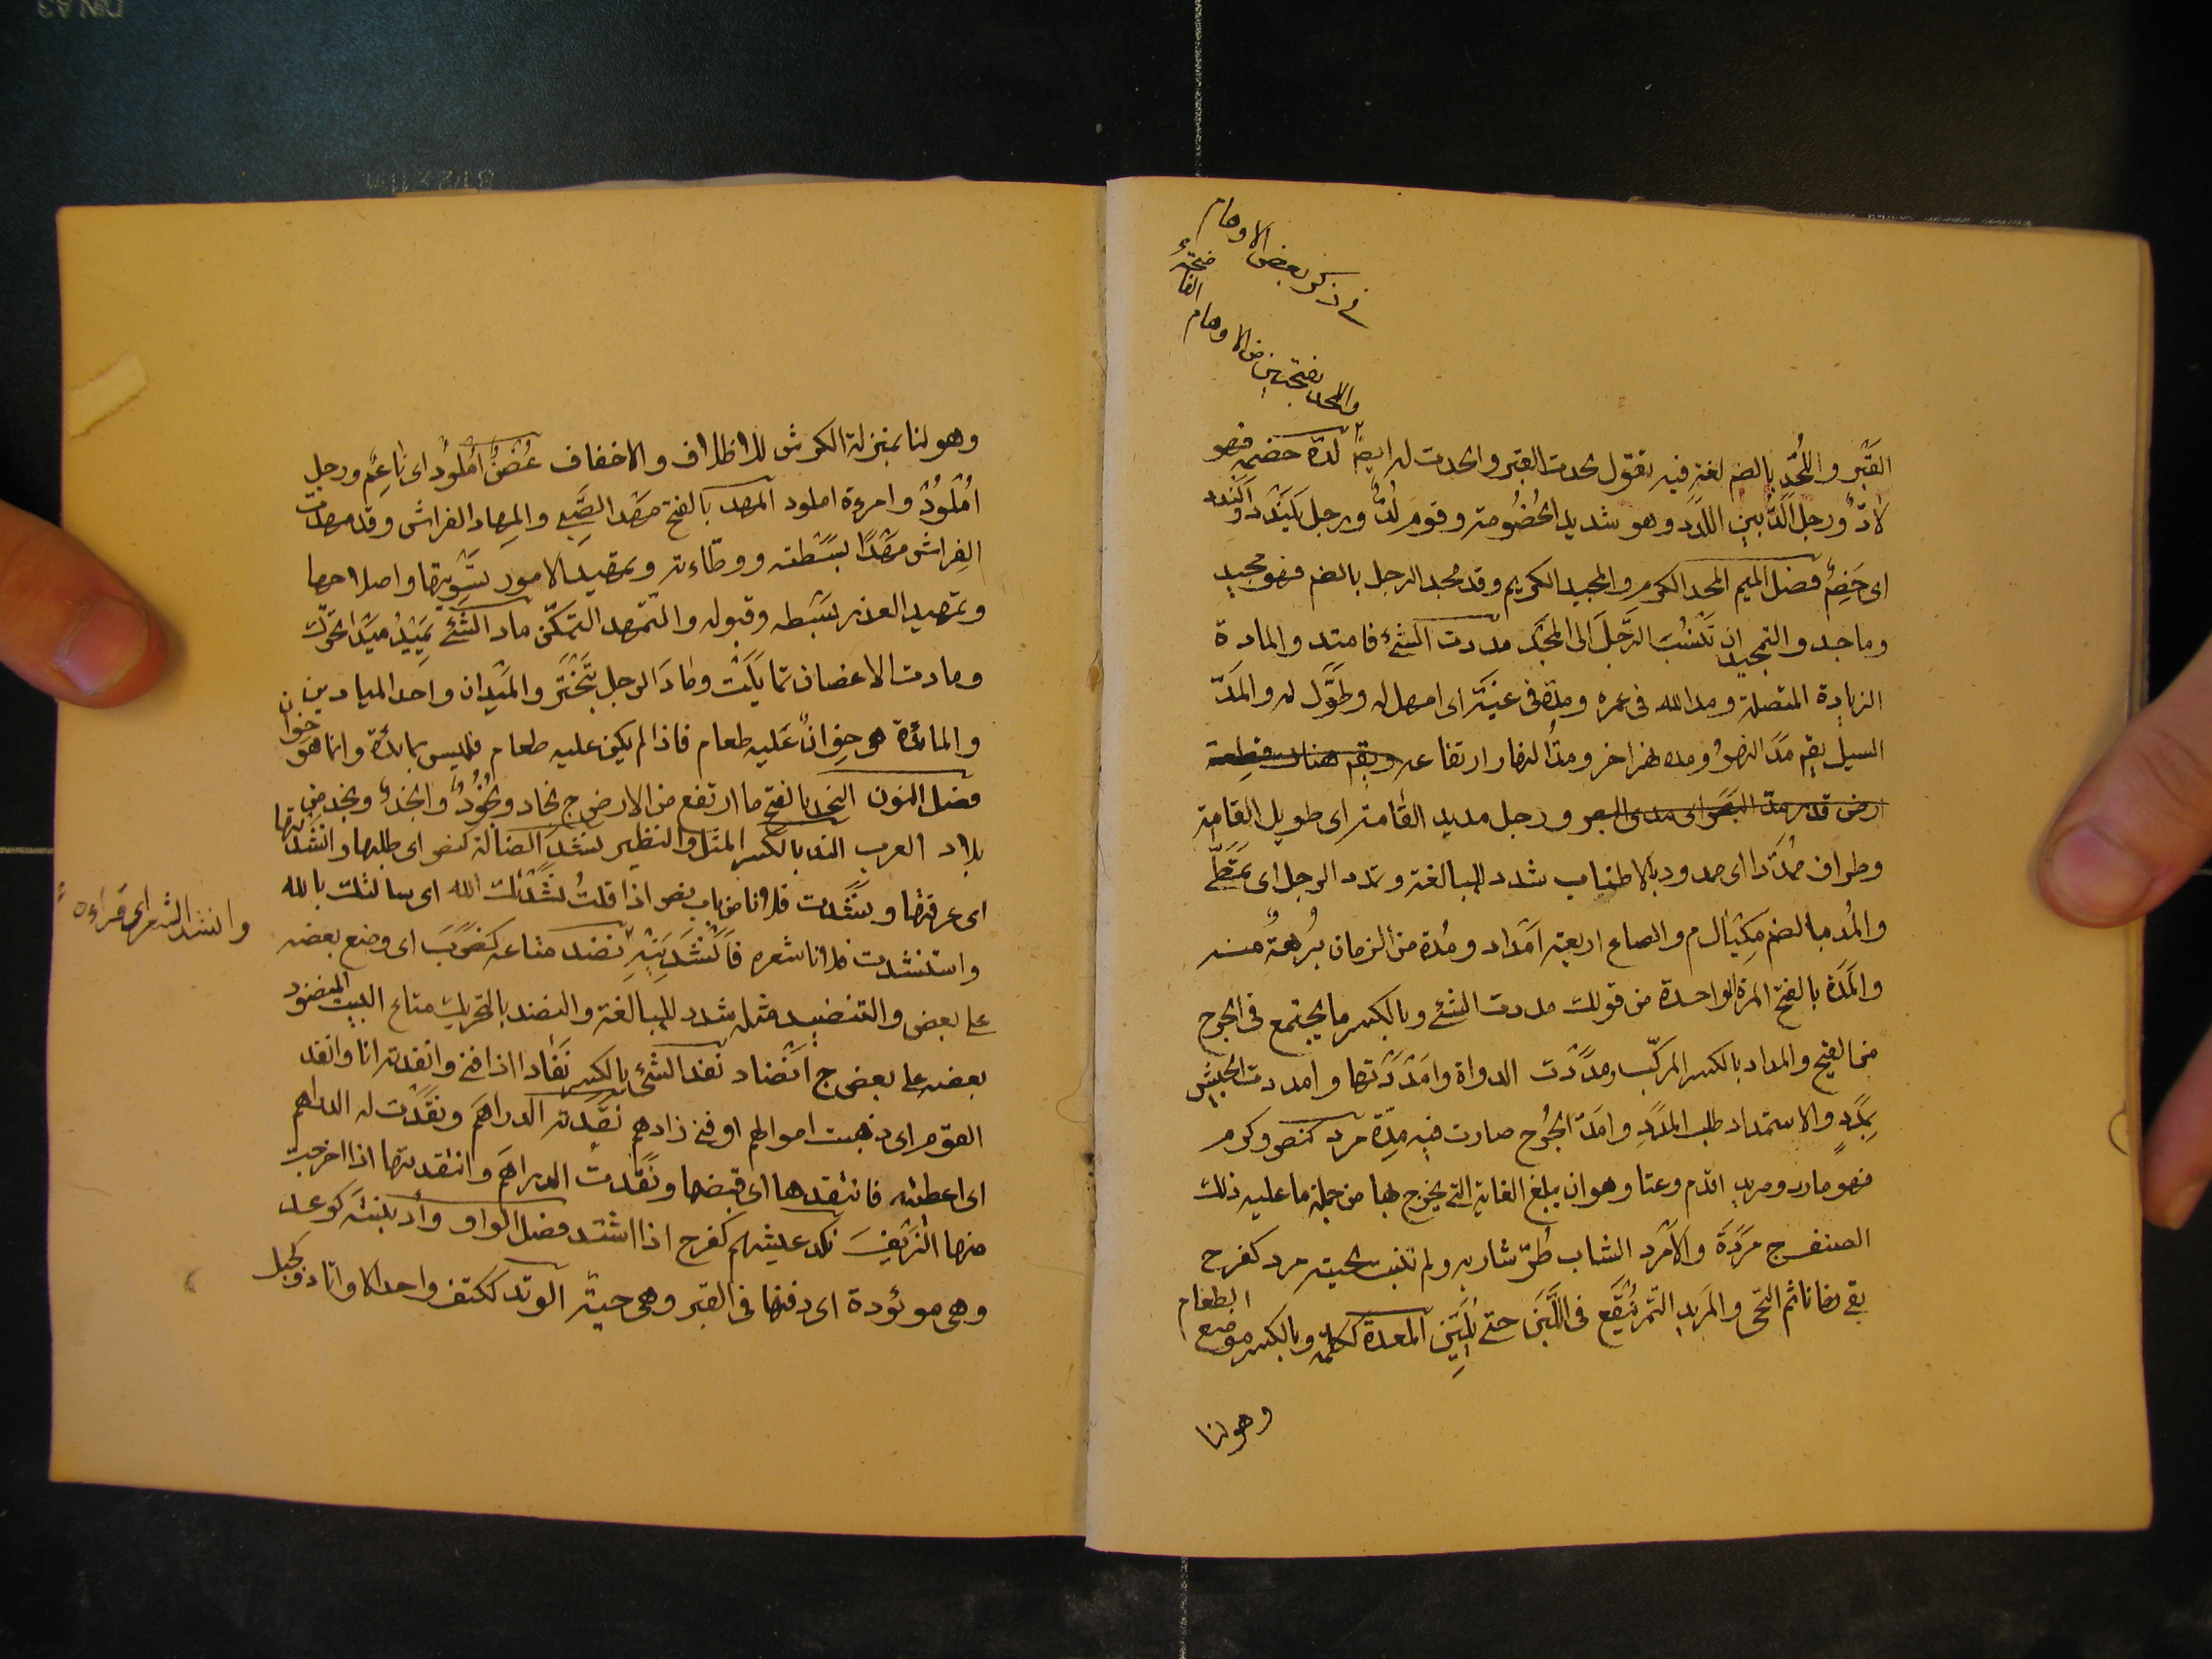 في ذكر بعض الاوهام
والمجد بفتحتين من الاوهام
القَبْر واللُحد بالضم لغة فيه تقول لحدت القبر والحدت له ايضا لدّه خصمه فهو
لادّ ورجل الدّ بين اللدد وهو شديد الخُصُومة وقوم لُدّ ورجل يَلَنْدَد واَلَنْدد
اى خَصِم فصل الميم المجد الكرم والمجيد الكريم وقد مجد الرجل بالضم فهو مجيد
وماجد والتمجيد ان تَنْسُبَ الرَّجلَ الى المَجْد مددت الشئ فامتد والمادة
الزيادة المتصلة ومد الله فى عمره ومدّه فى غيّه اى امهل له وطوّل له والمَدّ
السيل يقم مَدّ النهرُ ومده نهر اخر ومدّ النهار ارتفاعه ويقم هناك قطعة
ارض قدر مدّ البَصَر اى مدى البصر ورجل مديد القامة اى طويل القامة
وطراف مُمَدّد اى ممدود بالاطناب شدد للمبالغة وتمدد الرجل اى تمطّى
والمُد بالضم مِكْيَال م والصاع اربعة اَمْداد ومُدة من الزمان بُرهة منه
والمَدّة بالفتح المرة الواحدة من قولك مددت الشئ وبالكسر ما يجتمع فى الجرح
من القيح والمداد بالكسر المركّب ومَدَدْت الدواة وامْدَدْتها وامددت الجيش
بمَدَدٍ والاستمداد طلب المَدَدِ وامَدّ الجُرح صارت فيه مِدّة مرد كنصر وكرم
فهو مارد ومريد اقدم وعتا وهو ان يبلغ الغاية التى يخرج بها من جملة ما عليه ذلك
الصنف ج مَرَدَة والامْرَد الشاب طُرّ شاربه ولم تنبت لحيته مرد كفرح
بقى زمانا ثم التحى والمَريد التّمر يُنقَع فى اللَّبَن حتى يَلِيَن المعدة ككلمة وبالكسر موضع الطعام
وهو لنا
وهو لنا بمنزلة الكرش للاظلاف والاخفاف غُصْنٌ اُمْلودٌ اى ناعِمٌ ورجل
اُمْلُودٌ وامرءة املود المهد بالفتح مَهْد الصَّبِى والمِهاد الفراش وقد مهدت
الفِراش مَهْدًا بسَطته ووطّاءته وتمهيد الامور تَسْوِيتها واصلاحها
وتمهيد العذر بَسْطه وقبوله والتّمهد التمكّن ماد الشَّئ يَمِيدُ مَيْدًا تحرّك
ومادت الاغصان تمايَلَتْ ومادَ الرجل تَبَخْتَر والمَيْدان واحد الميادين
والمائدة هو خِوانٌ عَليه طعام فاذا لم يكن عليه طعام فليس بمائدة وانما هو خوان
فصل النون النجد بالفتح ما ارتفع من الارض ج نجاد ونُجُودٌ وانجُدٌ ونجد من
بلاد العرب الند بالكسر المثل والنظير نشَدَ الضالة كنصر اى طلبها وانشدتها
اى عرفتها ونَشَدت فلانا من باب نصر اذا قلتُ نَشَدْتُك الله اى سالتك بالله
وانشد الشعر اى قراءه
واستنشدت فلانا شعره فاَنْشَدَنِيه نضد متاعه كضَرَبَ اى وضع بعضه
على بعض والتنضيد مثله شدد للمبالغة والنضد بالتحريك متاع البيت المنضود
بعضه على بعض ج اَنْضاد نفد الشئ بالكسر نَفَادا اذا فنى وانفدته انا وانفد
القوم اى ذهبت اموالهم او فنى زادهم نقدته الدراهمَ ونقدت له الدراهم
اى اعطيته فانتقدها اى قبضها ونَقَدتُ الدراهمَ وانتقدتها اذا اخرجت
منها الزَّيفَ نكد عيشهم كفرح اذا اشتد فصل الواو وأد بنته كوعد
وهى موئودة اى دفنها فى القبر وهى حية الوتد ككتف واحد الاوتاد وكجبل